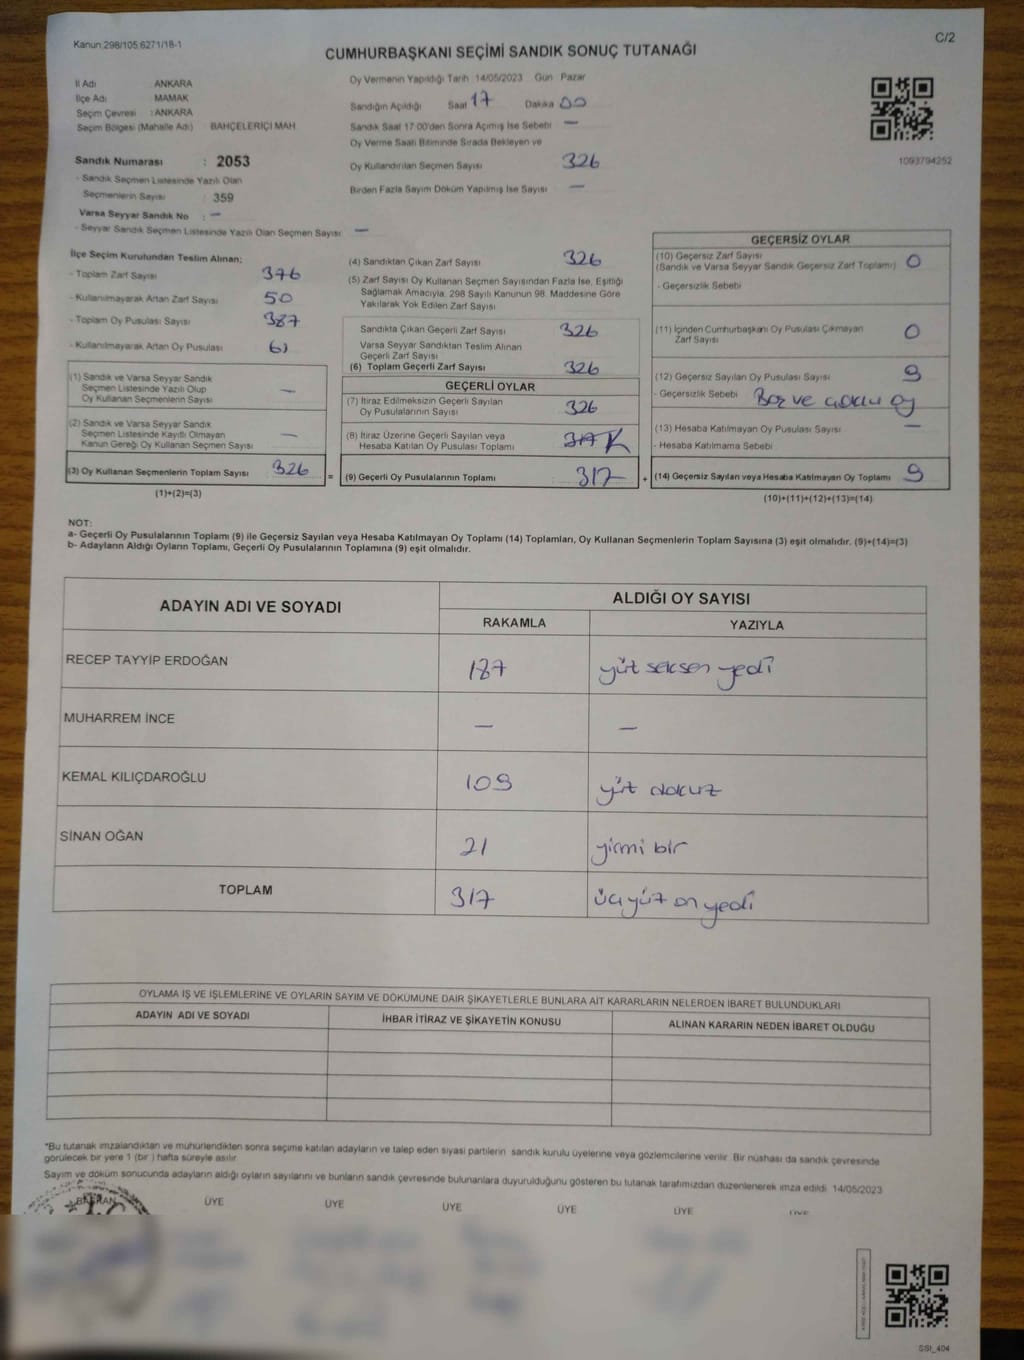 Kanun:298/105 6271/18-1
C/2
CUMHURBAŞKANI SEÇİMİ SANDIK SONUÇ TUTANAĞI
İl Adı : ANKARA
İlçe Adı : MAMAK
Seçim Çevresi : ANKARA
Seçim Bölgesi (Mahalle Adı) BAHÇELERİÇİ MAH
Sandık Numarası : 2053
- Sandık Seçmen Listesinde Yazılı Olan
Seçmenlerin Sayısı : 359
Varsa Seyyar Sandık No : -
- Seyyar Sandık Seçmen Listesinde Yazılı Olan Seçmen Sayısı: -
Oy Vermenin Yapıldığı Tarih 14/05/2023 Gün Pazar
Sandığın Açıldığı Saat 17 Dakika 00
Sandık Saat 17:00'den Sonra Açılmış İse Sebebi -
Oy Verme Saati Bitiminde Sırada Bekleyen ve
Oy Kullandırılan Seçmen Sayısı 326
Birden Fazla Sayım Döküm Yapılmış İse Sayısı -
1093794252
İlçe Seçim Kurulundan Teslim Alınan;
- Toplam Zarf Sayısı 376
- Kullanılmayarak Artan Zarf Sayısı 50
- Toplam Oy Pusulası Sayısı 387
- Kullanılmayarak Artan Oy Pusulası 61
(1) Sandık ve Varsa Seyyar Sandık
Seçmen Listesinde Yazılı Olup
Oy Kullanan Seçmenlerin Sayısı -
(2) Sandık ve Varsa Seyyar Sandık
Seçmen Listesinde Kayıtlı Olmayan
Kanun Gereği Oy Kullanan Seçmen Sayısı -
(3) Oy Kullanan Seçmenlerin Toplam Sayısı 326
(1)+(2)=(3)
(4) Sandıktan Çıkan Zarf Sayısı 326
(5) Zarf Sayısı Oy Kullanan Seçmen Sayısından Fazla İse, Eşitliği
Sağlamak Amacıyla; 298 Sayılı Kanunun 98. Maddesine Göre
Yakılarak Yok Edilen Zarf Sayısı
Sandıkta Çıkan Geçerli Zarf Sayısı 326
Varsa Seyyar Sandıktan Teslim Alınan
Geçerli Zarf Sayısı
(6) Toplam Geçerli Zarf Sayısı 326
GEÇERLİ OYLAR
(7) İtiraz Edilmeksizin Geçerli Sayılan
Oy Pusulalarının Sayısı 326
(8) İtiraz Üzerine Geçerli Sayılan veya
Hesaba Katılan Oy Pusulası Toplamı 317
= (9) Geçerli Oy Pusulalarının Toplamı 317 +
GEÇERSİZ OYLAR
(10) Geçersiz Zarf Sayısı
(Sandık ve Varsa Seyyar Sandık Geçersiz Zarf Toplamı) 0
- Geçersizlik Sebebi
(11) İçinden Cumhurbaşkanı Oy Pusulası Çıkmayan
Zarf Sayısı 0
(12) Geçersiz Sayılan Oy Pusulası Sayısı 9
- Geçersizlik Sebebi Boş ve oy
(13) Hesaba Katılmayan Oy Pusulası Sayısı -
- Hesaba Katılmama Sebebi
(14) Geçersiz Sayılan veya Hesaba Katılmayan Oy Toplamı 9
(10)+(11)+(12)+(13)=(14)
NOT:
a- Geçerli Oy Pusulalarının Toplamı (9) ile Geçersiz Sayılan veya Hesaba Katılmayan Oy Toplamı (14) Toplamları, Oy Kullanan Seçmenlerin Toplam Sayısına (3) eşit olmalıdır. (9)+(14)=(3)
b- Adayların Aldığı Oyların Toplamı, Geçerli Oy Pusulalarının Toplamına (9) eşit olmalıdır.
ADAYIN ADI VE SOYADI
ALDIĞI OY SAYISI
RAKAMLA YAZIYLA
RECEP TAYYİP ERDOĞAN 187 yüz seksen yedi
MUHARREM İNCE - -
KEMAL KILIÇDAROĞLU 109 yüz dokuz
SİNAN OĞAN 21 yirmi bir
TOPLAM 317 üç yüz on yedi
OYLAMA İŞ VE İŞLEMLERİNE VE OYLARIN SAYIM VE DÖKÜMÜNE DAİR ŞİKAYETLERLE BUNLARA AİT KARARLARIN NELERDEN İBARET BULUNDUKLARI
ADAYIN ADI VE SOYADI İHBAR İTİRAZ VE ŞİKAYETİN KONUSU ALINAN KARARIN NEDEN İBARET OLDUĞU
*Bu tutanak imzalandıktan ve mühürlendikten sonra seçime katılan adayların ve talep eden siyasi partilerin sandık kurulu üyelerine veya gözlemcilerine verilir. Bir nüshası da sandık çevresinde
görülecek bir yere 1 (bir ) hafta süreyle asılır.
Sayım ve döküm sonucunda adayların aldığı oyların sayılarını ve bunların sandık çevresinde bulunanlara duyurulduğunu gösteren bu tutanak tarafımızdan düzenlenerek imza edildi. 14/05/2023
BAŞKAN ÜYE ÜYE ÜYE ÜYE ÜYE ÜYE
SSI_404